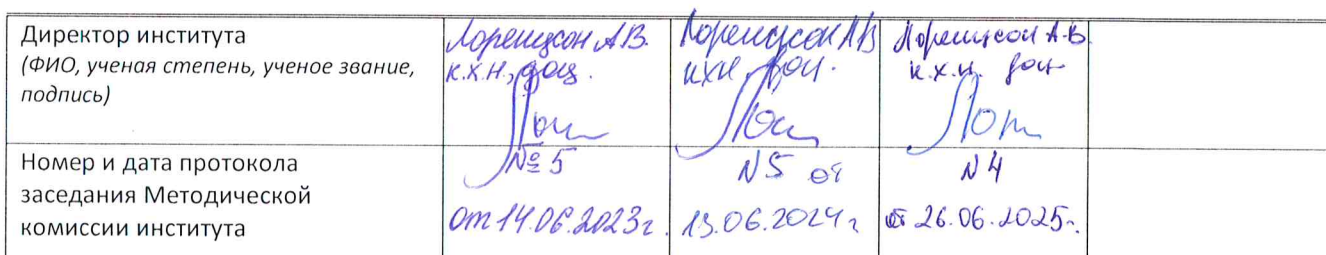 Директор института
(ФИО, ученая степень, ученое звание,
подпись)
Лоренцсон А.В.
к.х.н., доц.
Лоренцсон АВ
кхн, доц.
Лоренцсон А.В.
к.х.н. доц
Номер и дата протокола
заседания Методической
комиссии института
№ 5
от 14.06.2023г.
N5 от
13.06.2024г
N4
от 26.06.2025г.